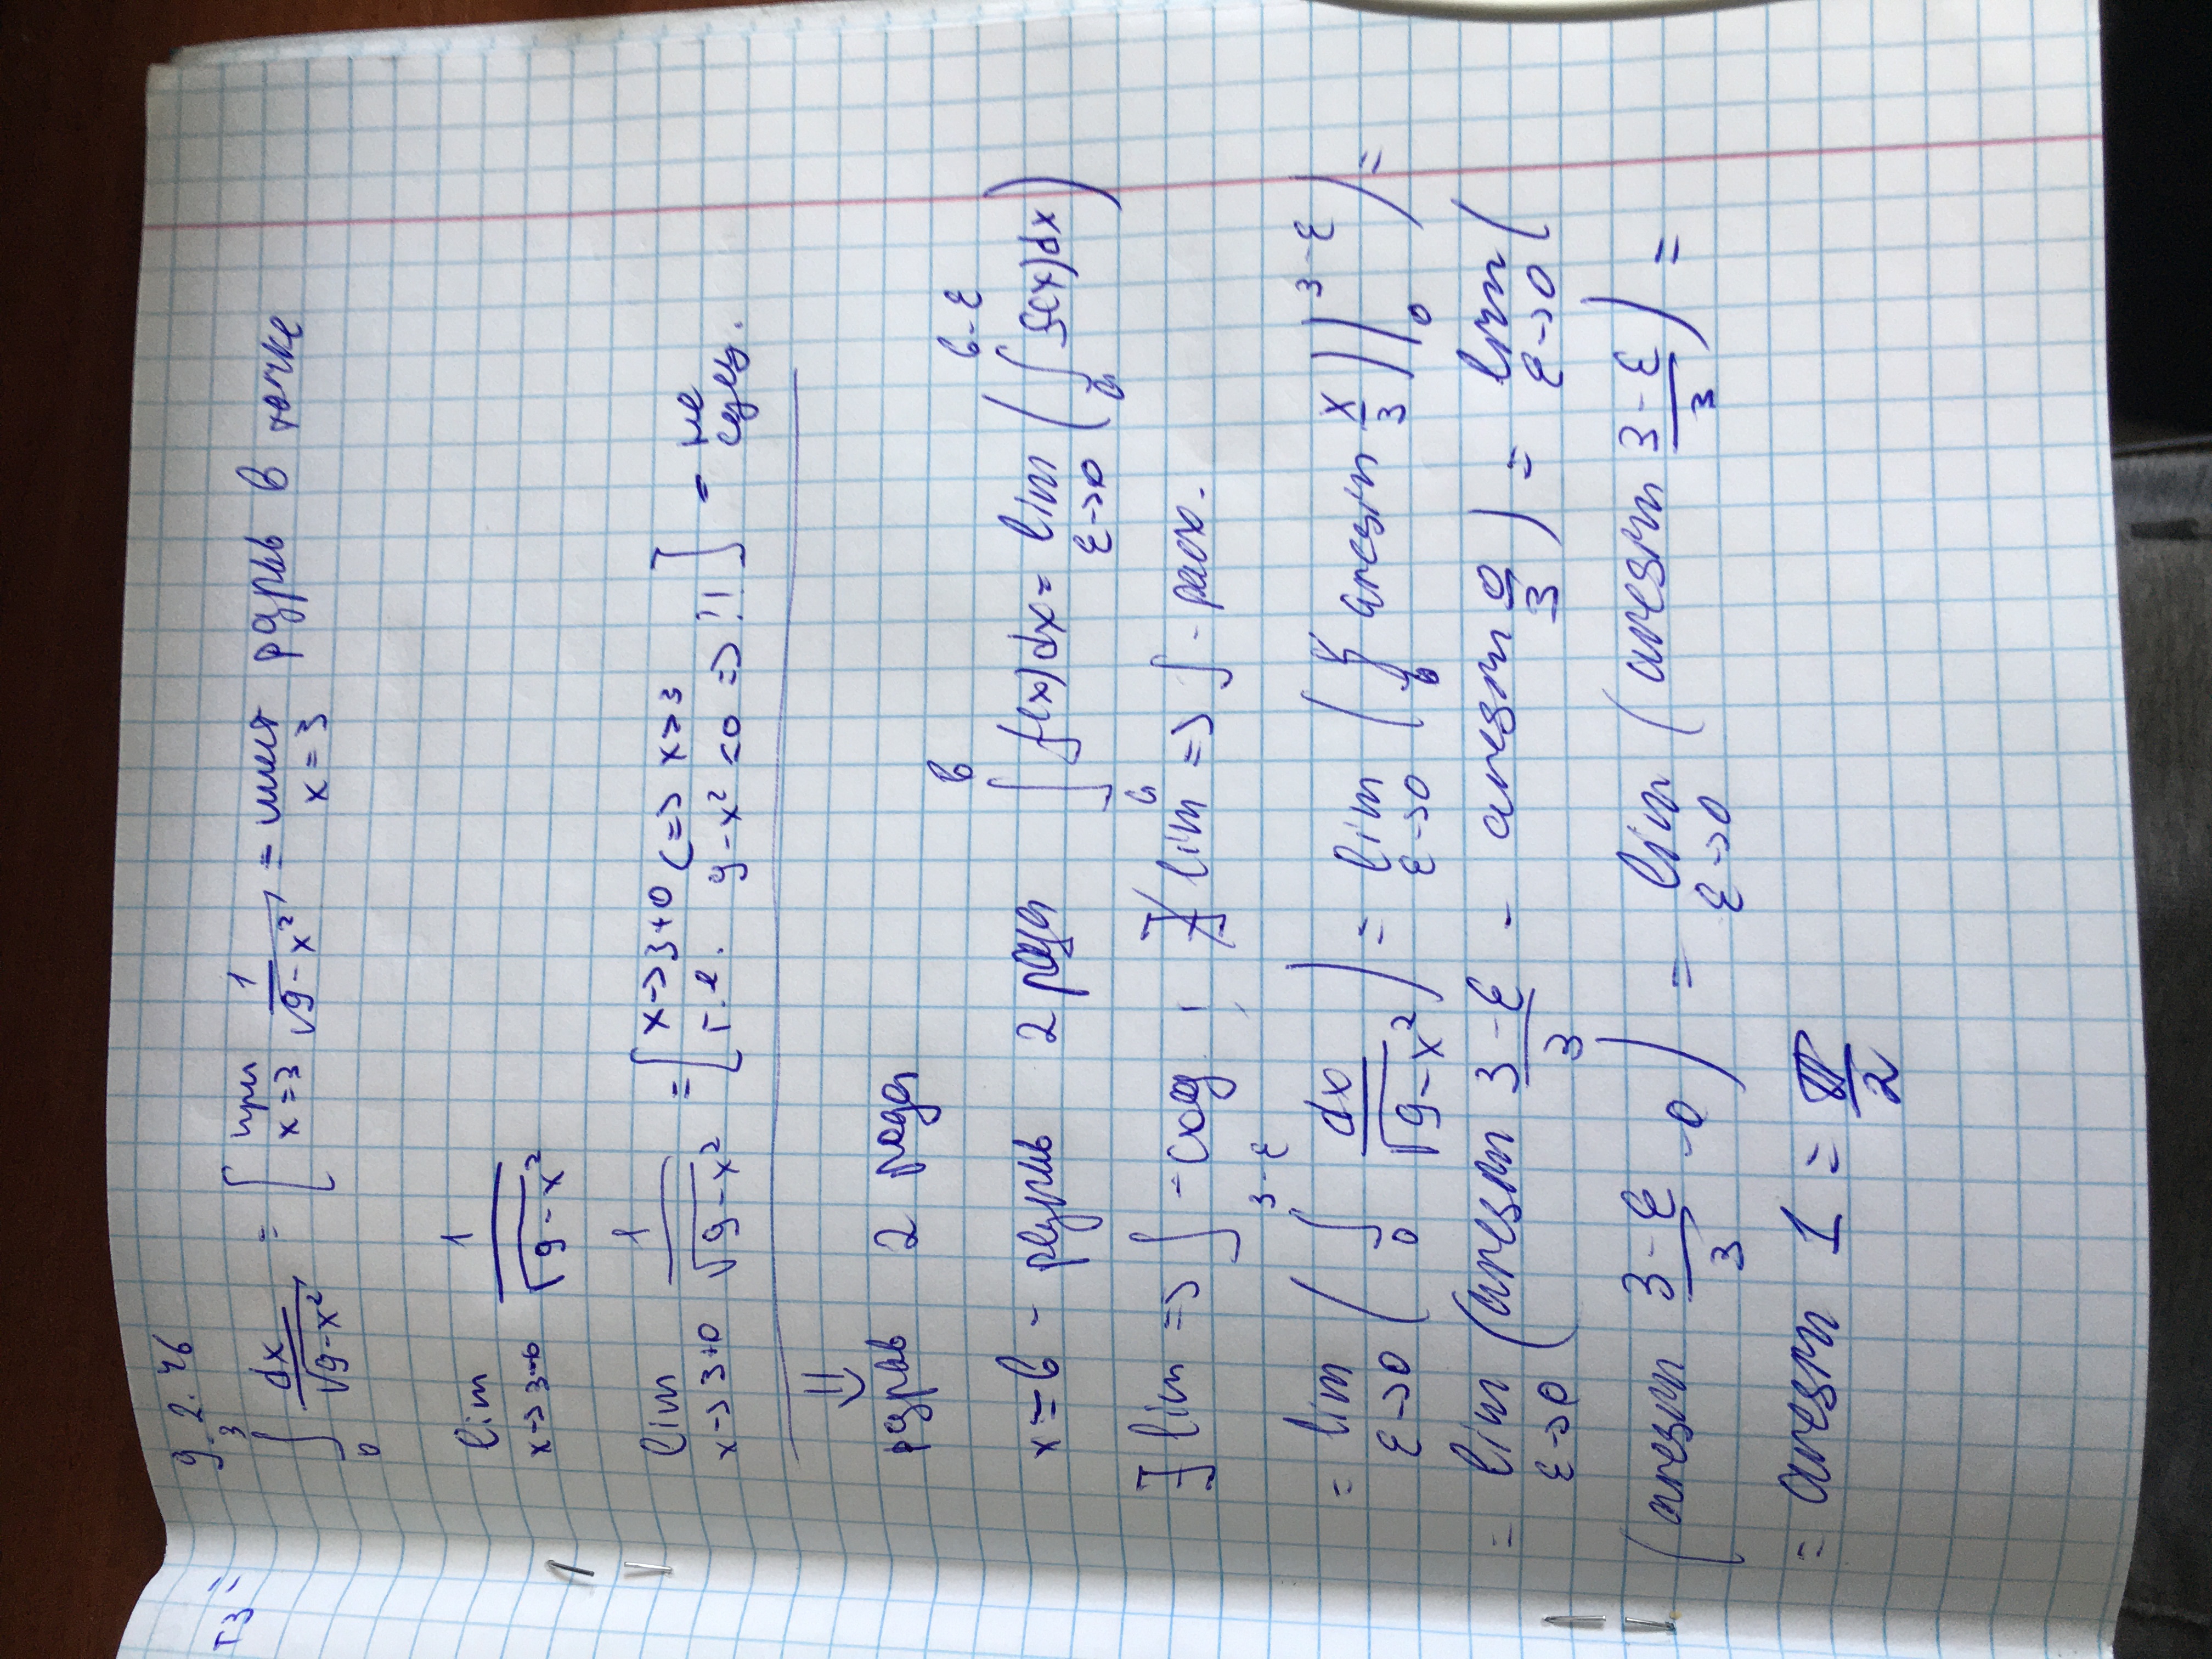 9.2.46
∫₀³ dx/√(9-x²) = [ при x=3 1/√(9-x²) = имеет разрыв в точке x=3
lim x→3-0 1/√(9-x²)
lim x→3+0 1/√(9-x²) = [ x→3+0 <=> x>3 т.е. 9-x² <0 => ?! ] = не сущ.
⇓
разрыв 2 рода
x=b - разрыв 2 рода ∫ₐᵇ f(x)dx = lim ε→0 ( ∫ₐᵇ⁻ᵋ f(x)dx )
∃ lim => ∫ - сход. , ∄ lim => ∫ - расх.
= lim ε→0 ( ∫₀³⁻ᵋ dx/√(9-x²) ) = lim ε→0 ( arcsin x/3 ) |₀³⁻ᵋ ) =
= lim ε→0 ( arcsin (3-ε)/3 - arcsin 0/3 ) = lim ε→0 (
( arcsin (3-ε)/3 -0 ) = lim ε→0 ( arcsin (3-ε)/3 ) =
= arcsin 1 = π/2